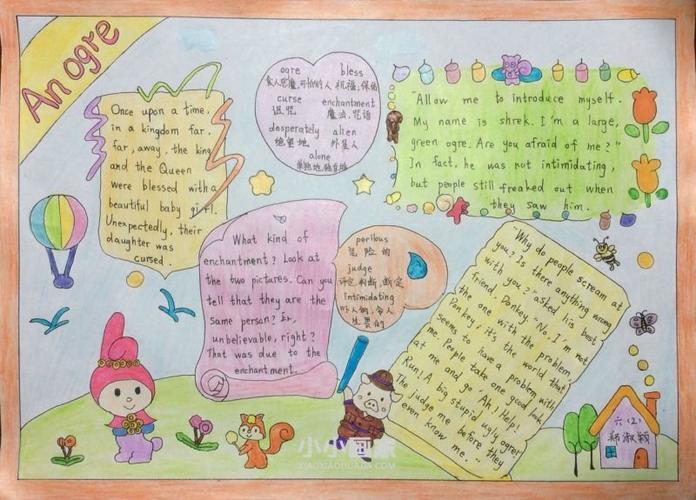 An ogre
Once upon a time,
in a kingdom far,
far, away, the king
and the Queen
were blessed with a
beautiful baby girl.
Unexpectedly, their
daughter was
cursed.
ogre bless
食人恶魔,可怕的人 祝福,保佑
curse enchantment
诅咒 魔法,咒语
desperately alien
绝望地 外星人
alone
单独地,独自地
"Allow me to introduce myself.
My name is shrek. I'm a large,
green ogre. Are you afraid of me?"
In fact, he was not intimidating,
but people still freaked out when
they saw him.
What kind of
enchantment? Look at
the two pictures. Can you
tell that they are the
same person?
unbelievable, right?
That was due to the
enchantment.
perilous
危险的
judge
评定,判断,断定
Intimidating
吓人的,令人
生畏的
"Why do people scream at
you? Is there anything wrong
with you?" asked his best
friend, Donkey. "No, I'm not
the one with the problem,
Donkey, it's the world that
seems to have a problem with
me. People take one good look
at me and go. Ah! Help!
Run! A big stupid ugly ogre!
The judge me before they
even know me.
六(2)
郑淑颖
小小画家
XIAOXIAOHUAJIA.COM